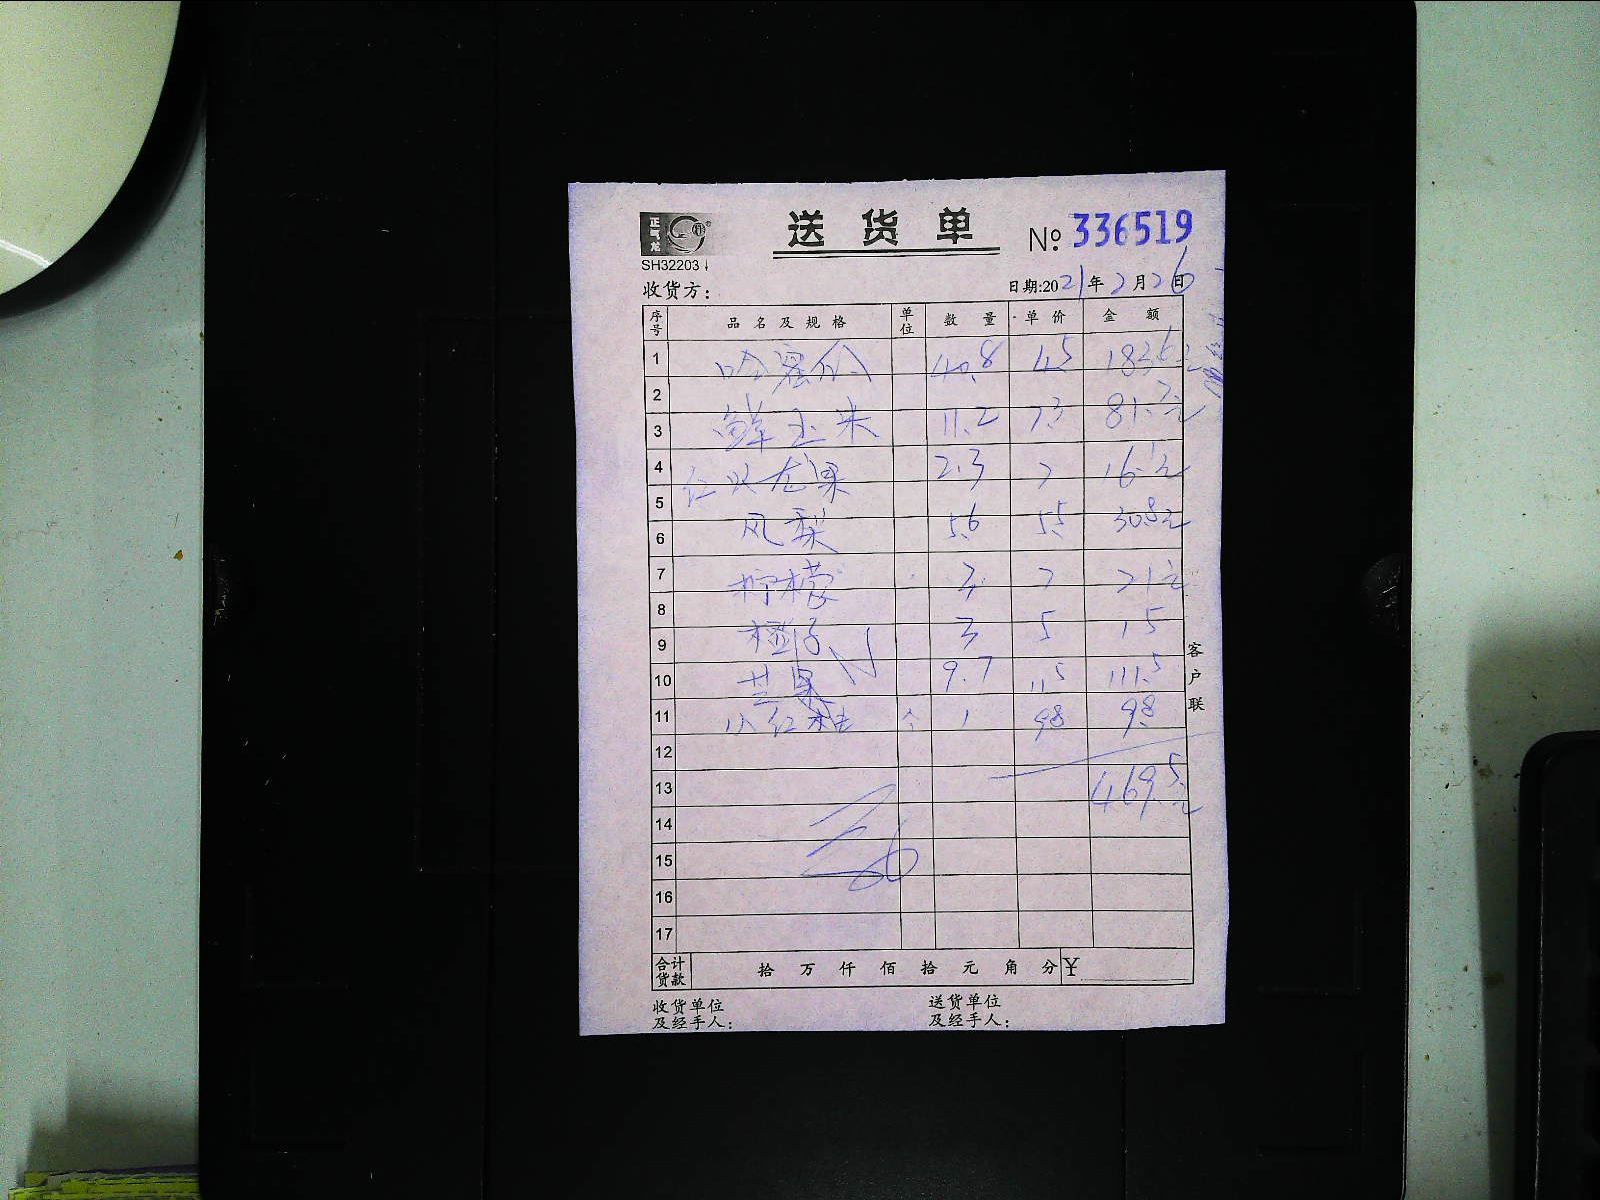 正气龙
送货单
№ 336519
SH32203
收货方: 日期:2021年2月26日
序号 品名及规格 单位 数量 单价 金额
1 哈密瓜 40.8 4.5 183.6元
2
3 鲜玉米 11.2 7.3 81.7元
4 红火龙果 2.3 7 16.1元
5
6 风梨 5.6 5.5 30.8元
7 柠檬 3 7 21元
8
9 橙子 3 5 15
10 苹果 9.7 11.5 111.5
11 小红桃 个 1 9.8 9.8
12
13 469.5元
14
15
16
17
合计货款 拾 万 仟 佰 拾 元 角 分 ¥
收货单位 送货单位
及经手人: 及经手人:
客户联